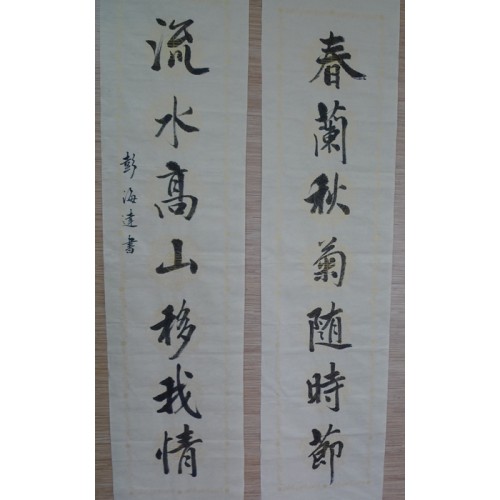 春蘭秋菊随時節
流水高山移我情
彭海逹書